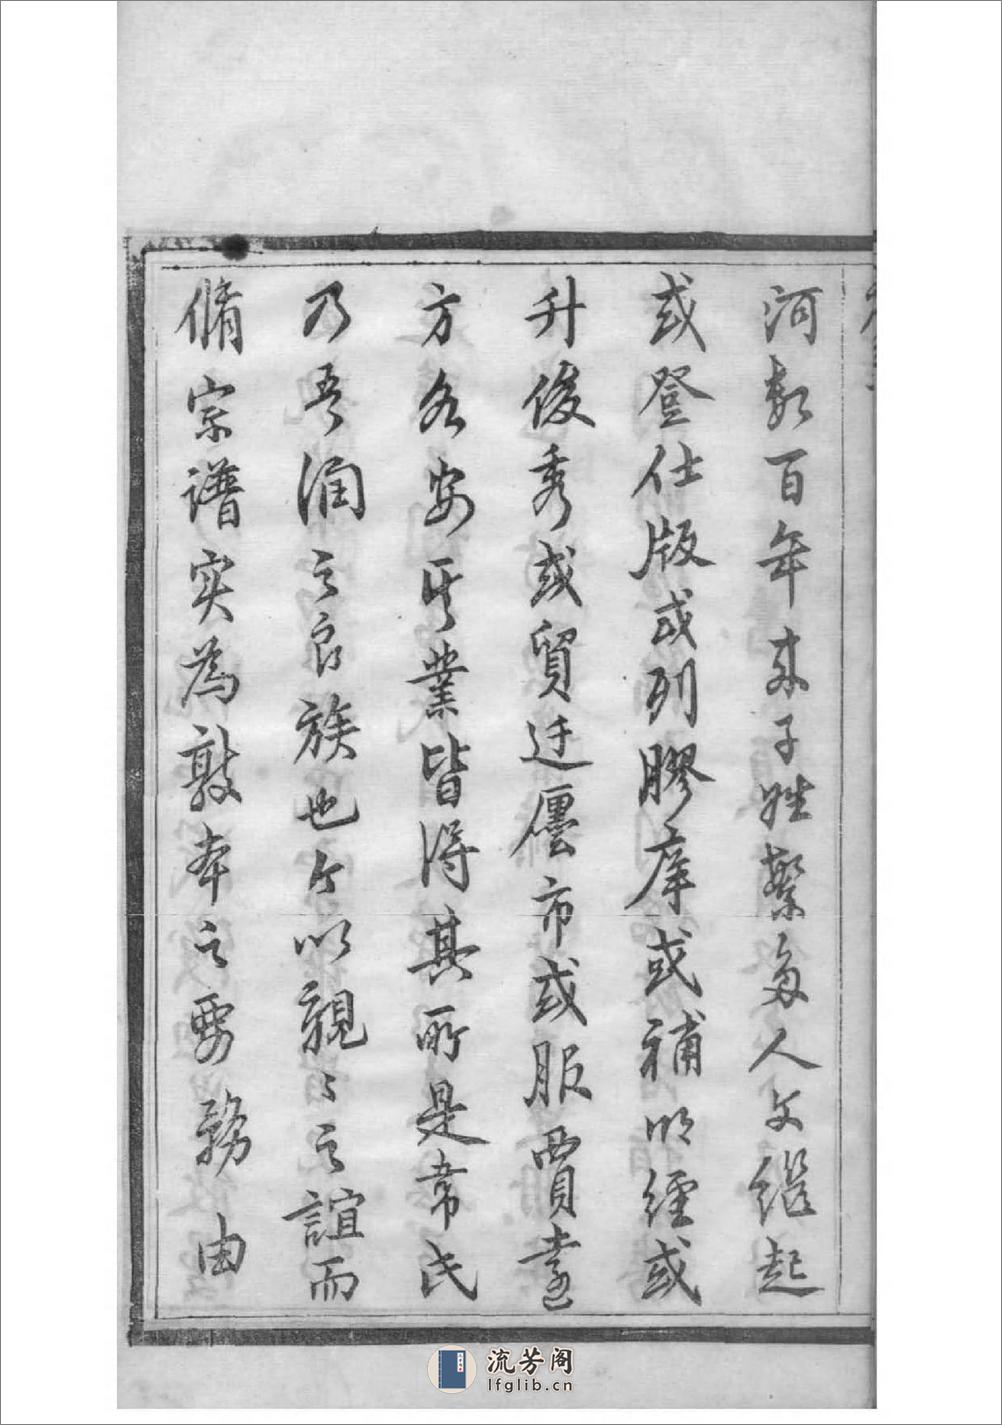 河數百年來子姓繁多人文繼起
或登仕版或列膠庠或補明經或
升俊秀或貿迁廛市或服賈遠
方各安其業皆得其所是韋氏
乃吾潤之良族也今以親〻之誼而
脩宗譜实為敦本之要務由
流芳阁
lfglib.cn